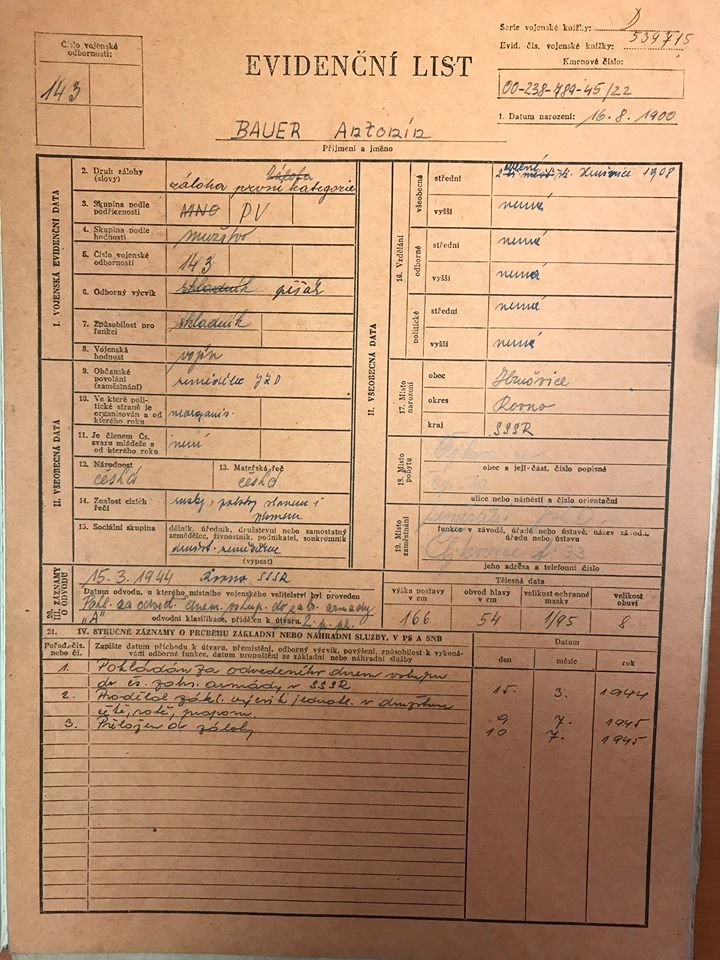 Číslo vojenské
odbornosti:
143
EVIDENČNÍ LIST
Serie vojenské knížky: D
Evid. čís. vojenské knížky: 539715
Kmenové číslo:
00-238-789-45/22
1. Datum narození: 16.8.1900
BAUER Antonín
Příjmení a jméno
I. VOJENSKÁ EVIDENČNÍ DATA
2. Druh zálohy
(slovy)
záloha první kategorie
3. Skupina podle
podřízenosti
MNO PV
4. Skupina podle
hodnosti
mužstvo
5. Číslo vojenské
odbornosti
143
6. Odborný výcvik
skladník pěšák
7. Způsobilost pro
funkci
skladník
8. Vojenská
hodnost
vojín
II. VŠEOBECNÁ DATA
9. Občanské
povolání
(zaměstnání)
zemědělec JZD
10. Ve které poli-
tické straně je
organisován a od
kterého roku
neorganis.
11. Je členem Čs.
svazu mládeže a
od kterého roku
není
12. Národnost
česká
13. Mateřská řeč
česká
14. Znalost cizích
řečí
rusky, polsky slovem i
písmem
15. Sociální skupina
dělník, úředník, družstevní nebo samostatný
zemědělec, živnostník, podnikatel, soukromník
družst. zemědělec
(vypsat)
II. VŠEOBECNÁ DATA
16. Vzdělání
všeobecné
střední
1908
vyšší
nemá
odborné
střední
nemá
vyšší
nemá
politické
střední
nemá
vyšší
nemá
17. Místo
narození
obec
okres
Rovno
kraj
SSSR
18. Místo
pobytu
obec a její část, číslo popisné
ulice nebo náměstí a číslo orientační
19. Místo
zaměstnání
funkce v závodě, úřadě nebo ústavě, název závodu,
úřadu nebo ústavu
33
jeho adresa a telefonní číslo
20.
III. ZÁZNAMY
O ODVODU
15.3.1944 Rovno SSSR
Datum odvodu, u kterého místního vojenského velitelství byl proveden
Pokl. za odved. dnem vstup. do zahr. armády
"A" 2. p. pl.
odvodní klasifikace, přidělen k útvaru
Tělesná data
výška postavy
v cm
obvod hlavy
v cm
velikost ochranné
masky
velikost
obuvi
166 54 1/95 8
21. IV. STRUČNÉ ZÁZNAMY O PRŮBĚHU ZÁKLADNÍ NEBO NÁHRADNÍ SLUŽBY, V PS A SNB
Pořad. čís.
nebo čl.
Zapište datum příchodu k útvaru, přemístění, odborný výcvik, povýšení, způsobilost k vykoná-
vání odborné funkce, datum propuštění ze základní nebo náhradní služby
Datum
den měsíc rok
1. Pokládán za odvedeného dnem vstupu
do čs. zahr. armády v SSSR 15. 3. 1944
2. Prodělal zákl. výcvik jednotl. v družstvu
četě, rotě, praporu. 9 7. 1945
3. Přeložen do zálohy 10 7. 1945